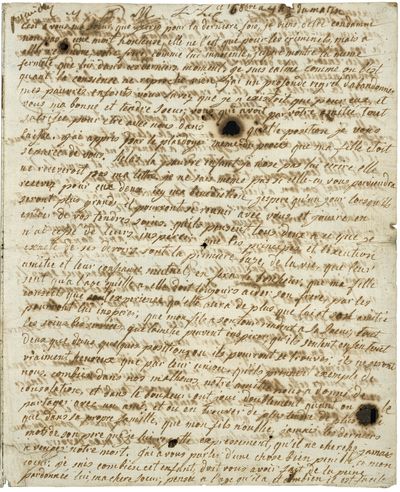 c'est a vous, ma soeur, que j'ecris pour la derniere fois, je viens d'etre condamnée
non pas a une mort honteuse, elle ne l'est que pour les criminels, mais a
aller rejoindre votre frere, comme lui innocente j'espere montrer la meme
fermeté que lui dans ces derniers moments. je suis calme comme on l'est
quand la conscience ne reproche rien, j'ai un profond regret d'abandonner
mes pauvres enfants, vous savez que je n'existois que pour eux, et
vous ma bonne et tendre soeur, vous qui avez par votre amitié tout
sacrifié pour etre avec nous dans quelle position je vous
laisse. j'ai appris par le plaidoyer meme du procès que ma fille étoit
separée de vous. helas la pauvre enfant je n'ose pas lui ecrire elle
ne recevroit pas ma lettre, je ne sais meme pas si celle ci vous parviendra
recevez pour eux deux ici ma benediction. j'espere qu'un jour lorsqu'ils
seront plus grands, ils pourront se reunir avec vous, et jouir en
entier de vos tendres soins. qu'ils pensent tous deux a ce que je
n'ai cessé de leur inspirer, que les principes, et l'execution
exacte de ses devoirs sont la premiere base de la vie, que leur
amitié et leur confiance mutuelle, en fera le bonheur, que ma fille
sente qu'a l'age qu'elle a, elle doit toujours aider son frere par les
conseils que l'experience qu'elle aura de plus que lui et son amitié
pourront lui inspirer, que mon fils a son tour rende a sa soeur, tous
les soins, les services que l'amitié peuvent inspirer, qu'ils sentent enfin tous
deux que dans quelque position ou ils pourront se trouver, ils ne seront
vraiment heureux que par leur union, qu'ils prennent exemple de
nous, combien dans nos malheurs notre amitié nous a donné de
consolation, et dans le bonheur on jouit doublement quand on peut le
partager avec un ami, et ou en trouver de plus tendre de plus cher
que dans sa propre famille. que mon fils n'oublie jamais les derniers
mots de son pere, que je lui repete expressement, qu'il ne cherche jamais
a venger notre mort. j'ai a vous parler d'une chose bien penible a mon
coeur. je sais combien cet enfant, doit vous avoir fait de la peine,
pardonnez lui, ma chere soeur, pensez a l'age qu'il a, et combien il est facile